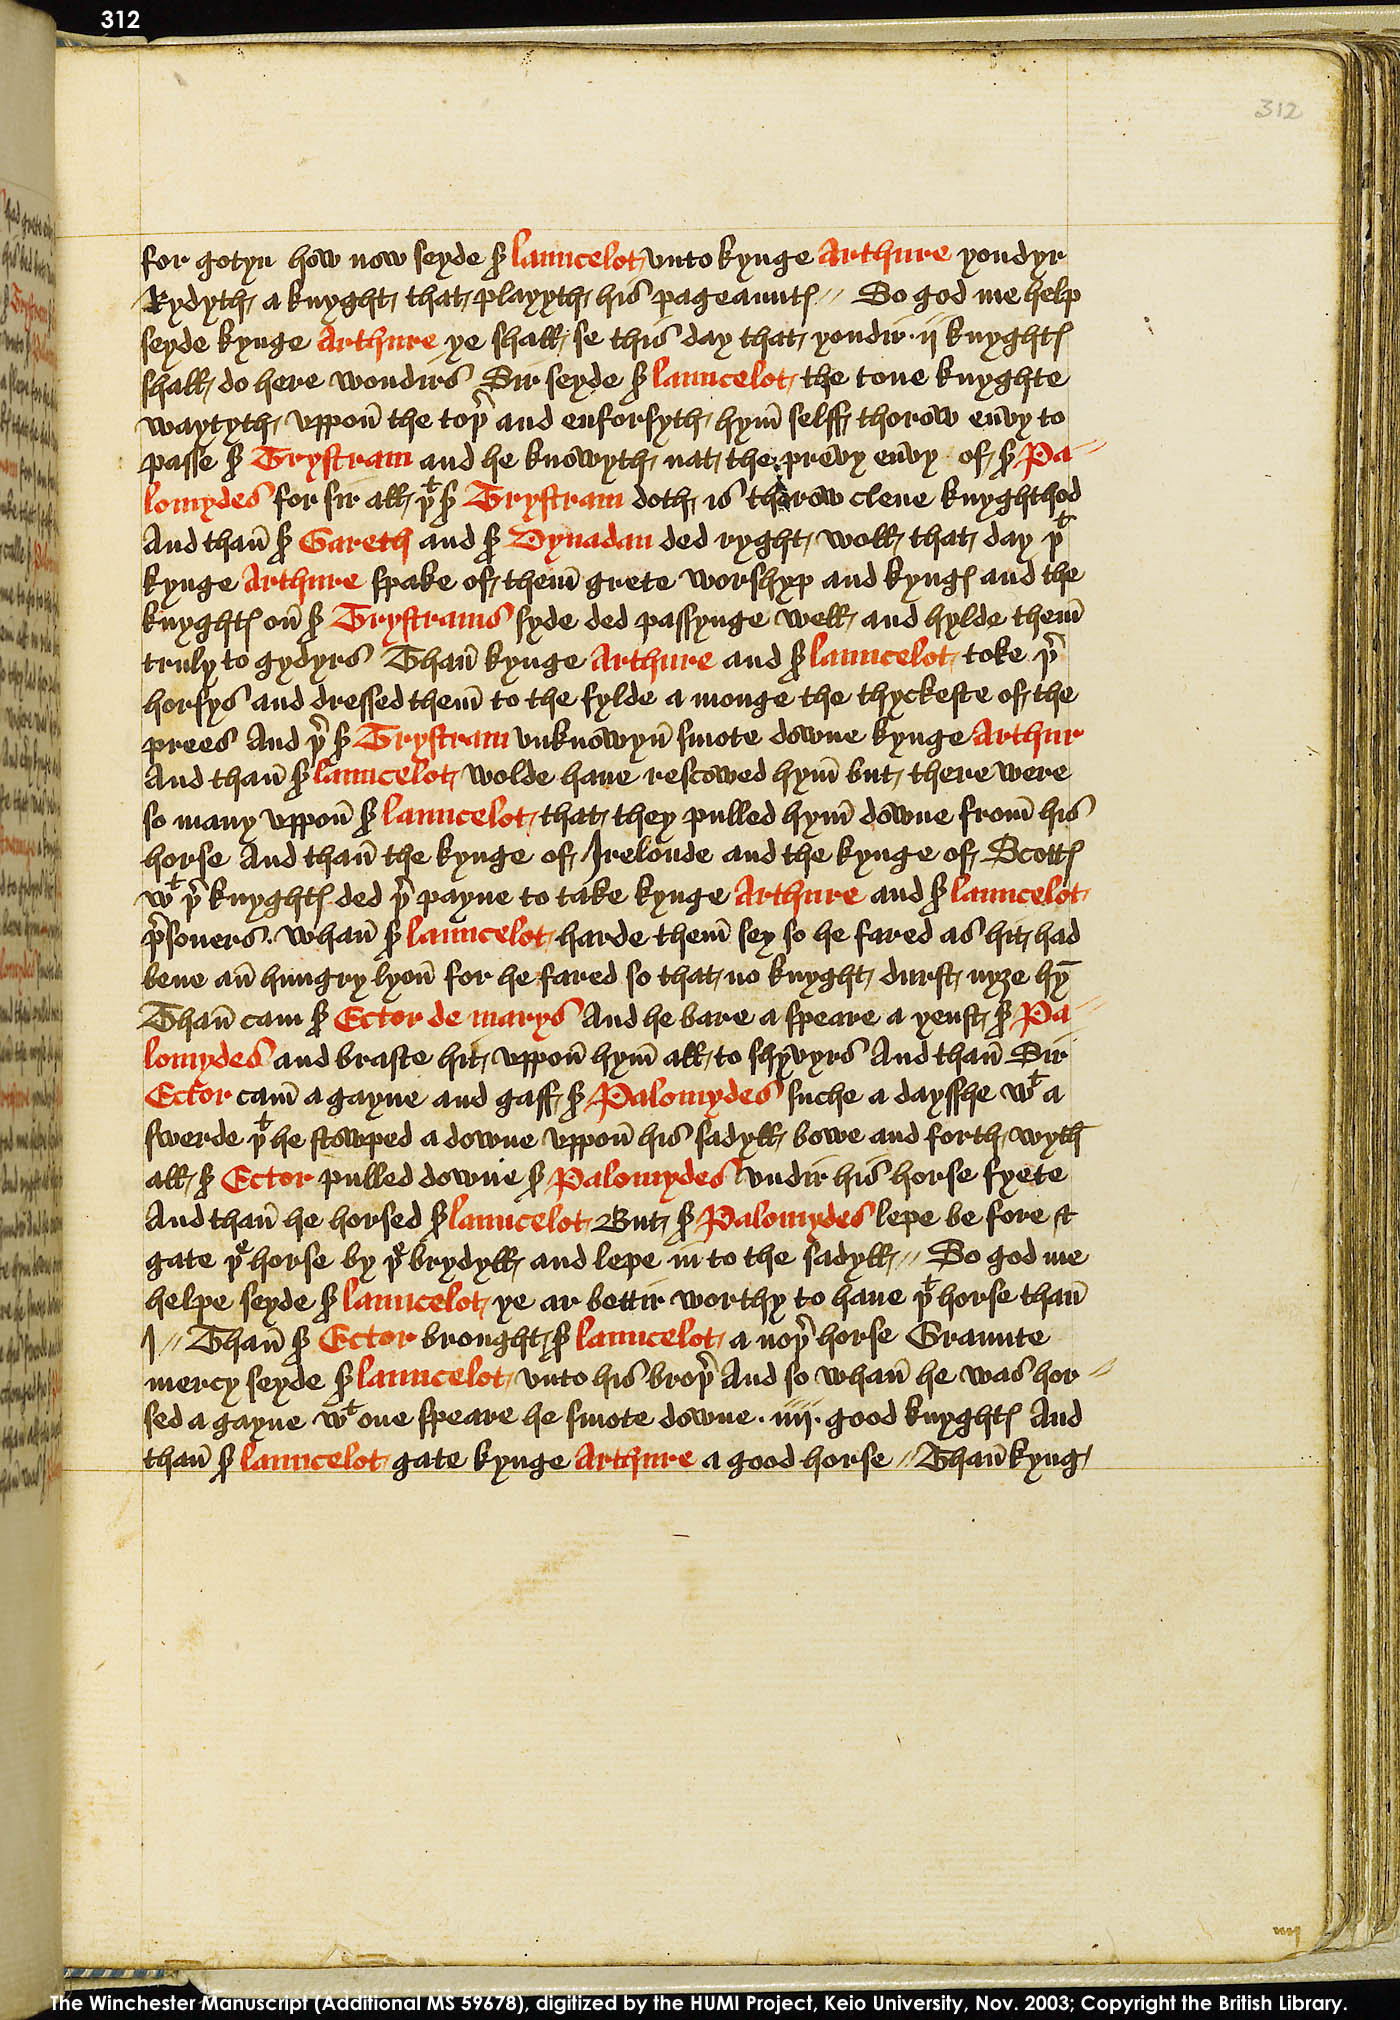 312
312
for gotyn how now seyde sr launcelot vnto kynge Arthure yondyr
Rydyth a knyght that playyth his pageaunts // So god me help
seyde kynge Arthure ye shall se this day that yondir · ij knyghts
shall do here wondirs Sir seyde sr launcelot the tone knyghte
waytyth vppon the topr and enforsyth hym selff thorow envy to
passe sr Trystram and he knowyth nat the prevy envy of sr Pa //
lomydes for sir all þt sr Trystram doth is thorow clene knyghthod
And than sr Gareth and sr Dynadan ded ryght woll that day þt
kynge Arthure spake of them grete worshyp and kyngs and the
knyghts on sr Trystrams syde ded passynge well and hylde them
truly to gydyrs Than kynge Arthure and sr launcelot toke þr
horsys and dressed them to the fylde a monge the thyckeste of the
prees And þr sr Trystram vnknowyn smote downe kynge Arthur
And than sr launcelot wolde haue rescowed hym but there were
so many vppon sr launcelot that they pulled hym downe from his
horse And than the kynge of Irelonde and the kynge of Scotts
wt þr knyghts ded þr payne to take kynge Arthure and sr launcelot
prsoners · whan sr launcelot harde them sey so he fared as hit had
bene an hungry lyon for he fared so that no knyght durst nyȝe hȳ
Than cam sr Ector de marys And he bare a speare a yenst sr Pa //
lomydes and braste hit vppon hym all to shyvyrs And than Sir
Ector cam a gayne and gaff sr Palomydes suche a daysshe wt a
swerde þt he stowped a downe vppon his sadyll bowe and forth wyth
all sr Ector pulled downe sr Palomydes vndir his horse fyete
And than he horsed sr launcelot But sr Palomydes lepe be fore &
gate þe horse by þe brydyll and lepe in to the sadyll // So god me
helpe seyde sr launcelot ye ar bettir worthy to haue þt horse than
I // Than sr Ector brought sr launcelot a noþr horse Graunte
mercy seyde sr launcelot vnto his broþr And so whan he was hor //
sed a gayne wt one speare he smote downe · iiij · good knyghts And
than sr launcelot gate kynge Arthure a good horse // Than kyng
iiij
The Winchester Manuscript (Additional MS 59678), digitized by the HUMI Project, Keio University, Nov. 2003; Copyright the British Library.